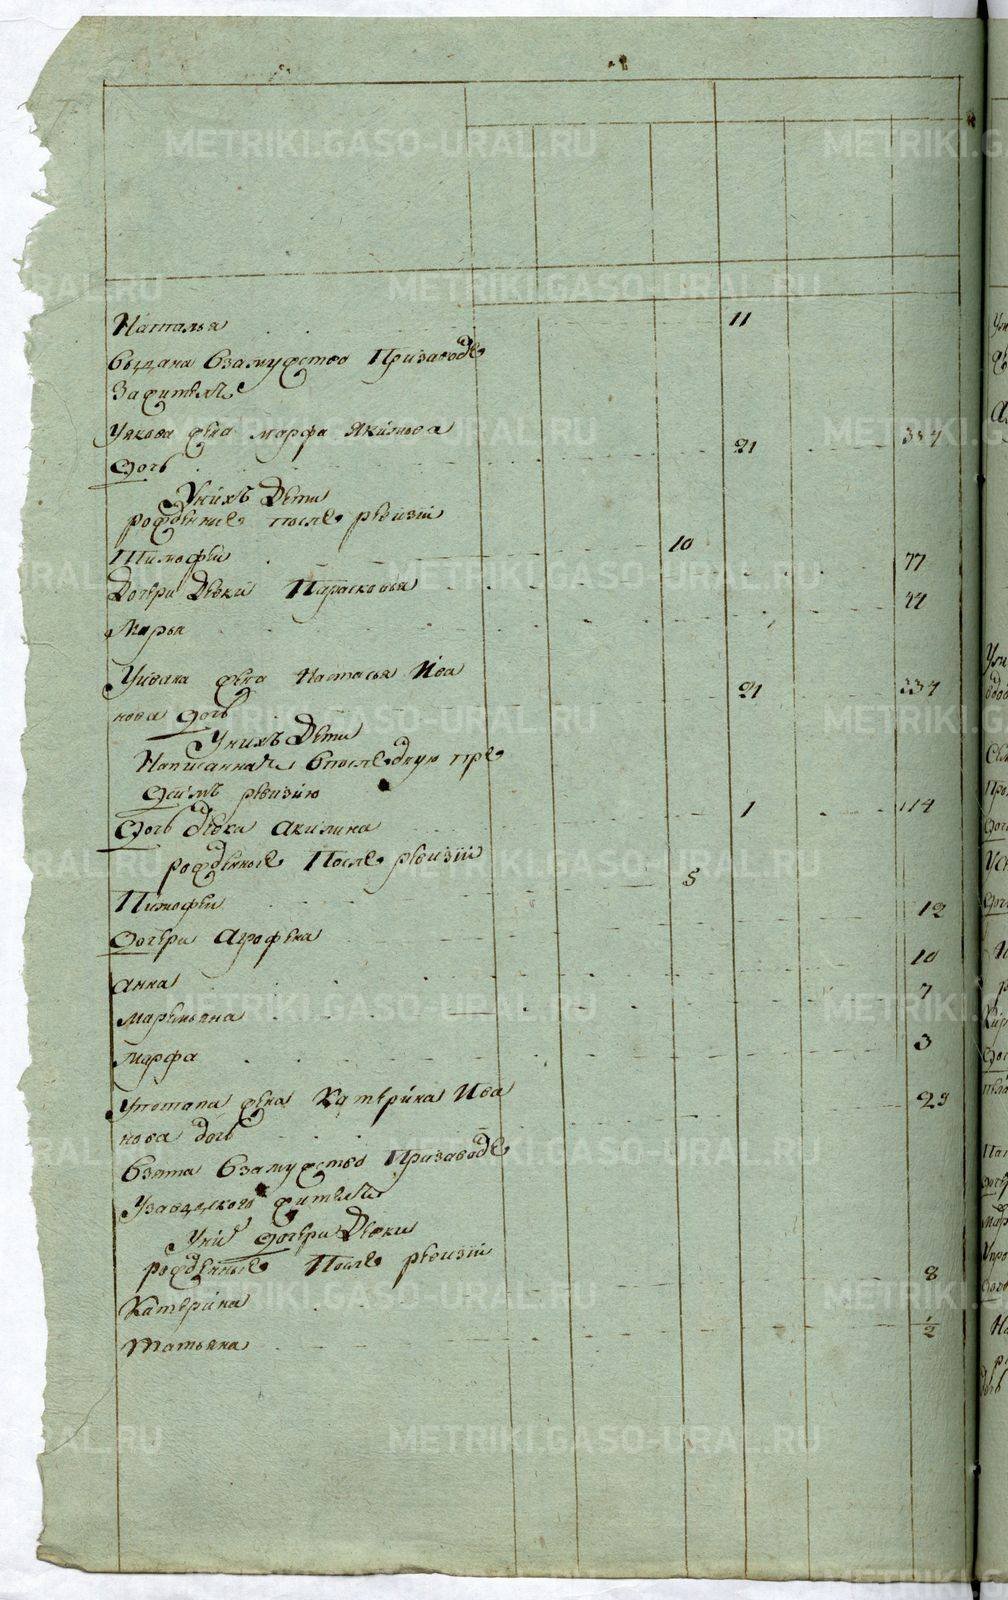 METRIKI.GASO-URAL.RU
Наталья 11
выдана взамужство Призаводе
Зажителя
Уякова жена марфа Якимова
дочь 21 334
Унихъ Дети
рожденные после ревизии
Тимофей 10
Дочери Девки Парасковья 77
Марья 44
Уивана жена Настасья Ива
нова дочь 21 334
Унихъ Дети
Написанная впоследную пре
дсимъ ревизию
дочь девка акилина 1 114
рожденные После ревизии
Тимофей 5
дочери Агрофена 12
анна 10
маремьяна 7
марфа 3
Употапа жена Катерина Ива 29
нова дочь
взята взамужство Призаводе
Узаводского жителя
Уних дочери Девки
рожденные После ревизии
Катерина 8
татьяна 1/2